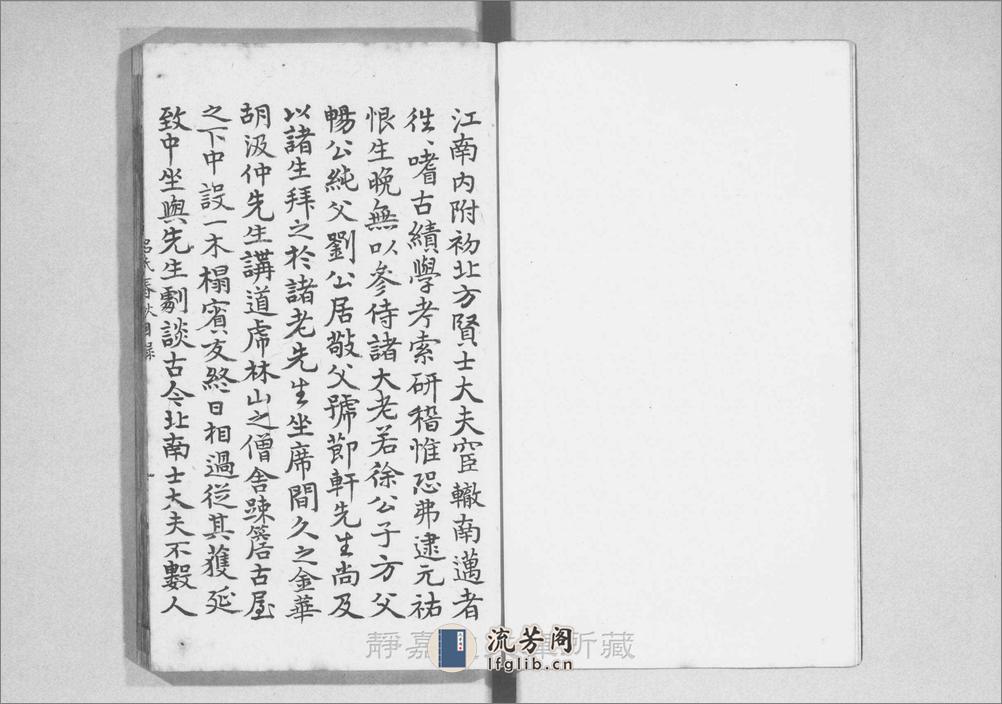 江南内附初北方賢士大夫宦轍南邁者
徃〻嗜古績學考索研稽惟恐弗逮元祐
恨生晚無以參侍諸大老若徐公子方父
暢公純父劉公居敬父號節軒先生尚及
以諸生拜之於諸老先生坐席間久之金華
胡汲仲先生講道虎林山之僧舍踈簷古屋
之下中設一木榻賓友終日相過從其獲延
致中坐與先生劇談古今北南士大夫不數人
呂氏春秋目録
一
靜嘉 所藏
流芳阁
lfglib.cn